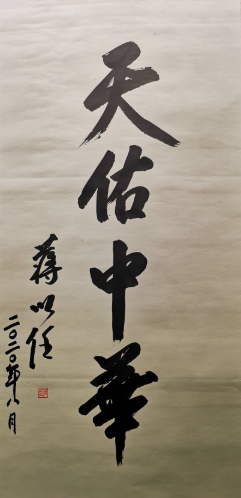 天佑中華
薄以任
二〇二〇年八月